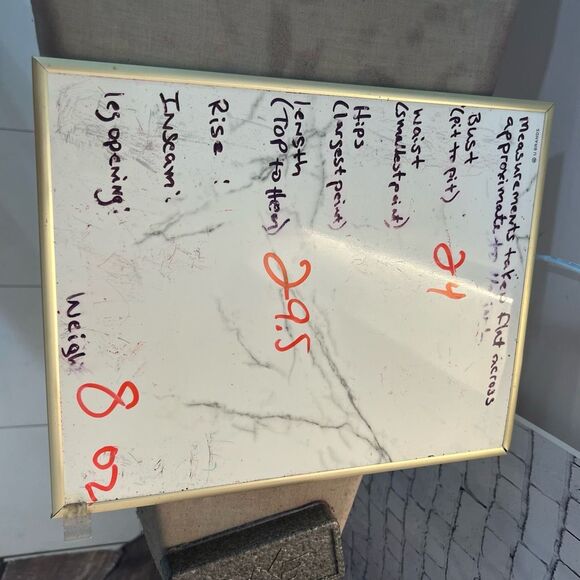 Measurements taken flat across
approximate to
Bust
(Pit to pit)
24
Waist
(smallest point)
Hips
(largest point)
length
(Top to Hem)
29.5
Rise :
Inseam :
leg opening :
Weigh
8 oz